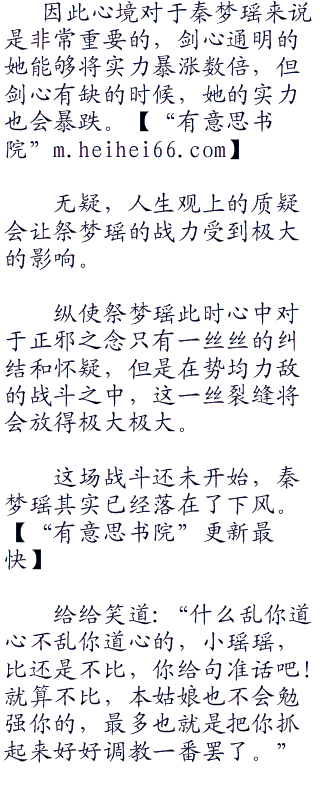 因此心境对于秦梦瑶来说
是非常重要的，剑心通明的
她能够将实力暴涨数倍，但
剑心有缺的时候，她的实力
也会暴跌。【“有意思书
院”m.heihei66.com】
无疑，人生观上的质疑
会让祭梦瑶的战力受到极大
的影响。
纵使祭梦瑶此时心中对
于正邪之念只有一丝丝的纠
结和怀疑，但是在势均力敌
的战斗之中，这一丝裂缝将
会放得极大极大。
这场战斗还未开始，秦
梦瑶其实已经落在了下风。
【“有意思书院”更新最
快】
给给笑道：“什么乱你道
心不乱你道心的，小瑶瑶，
比还是不比，你给句准话吧！
就算不比，本姑娘也不会勉
强你的，最多也就是把你抓
起来好好调教一番罢了。”